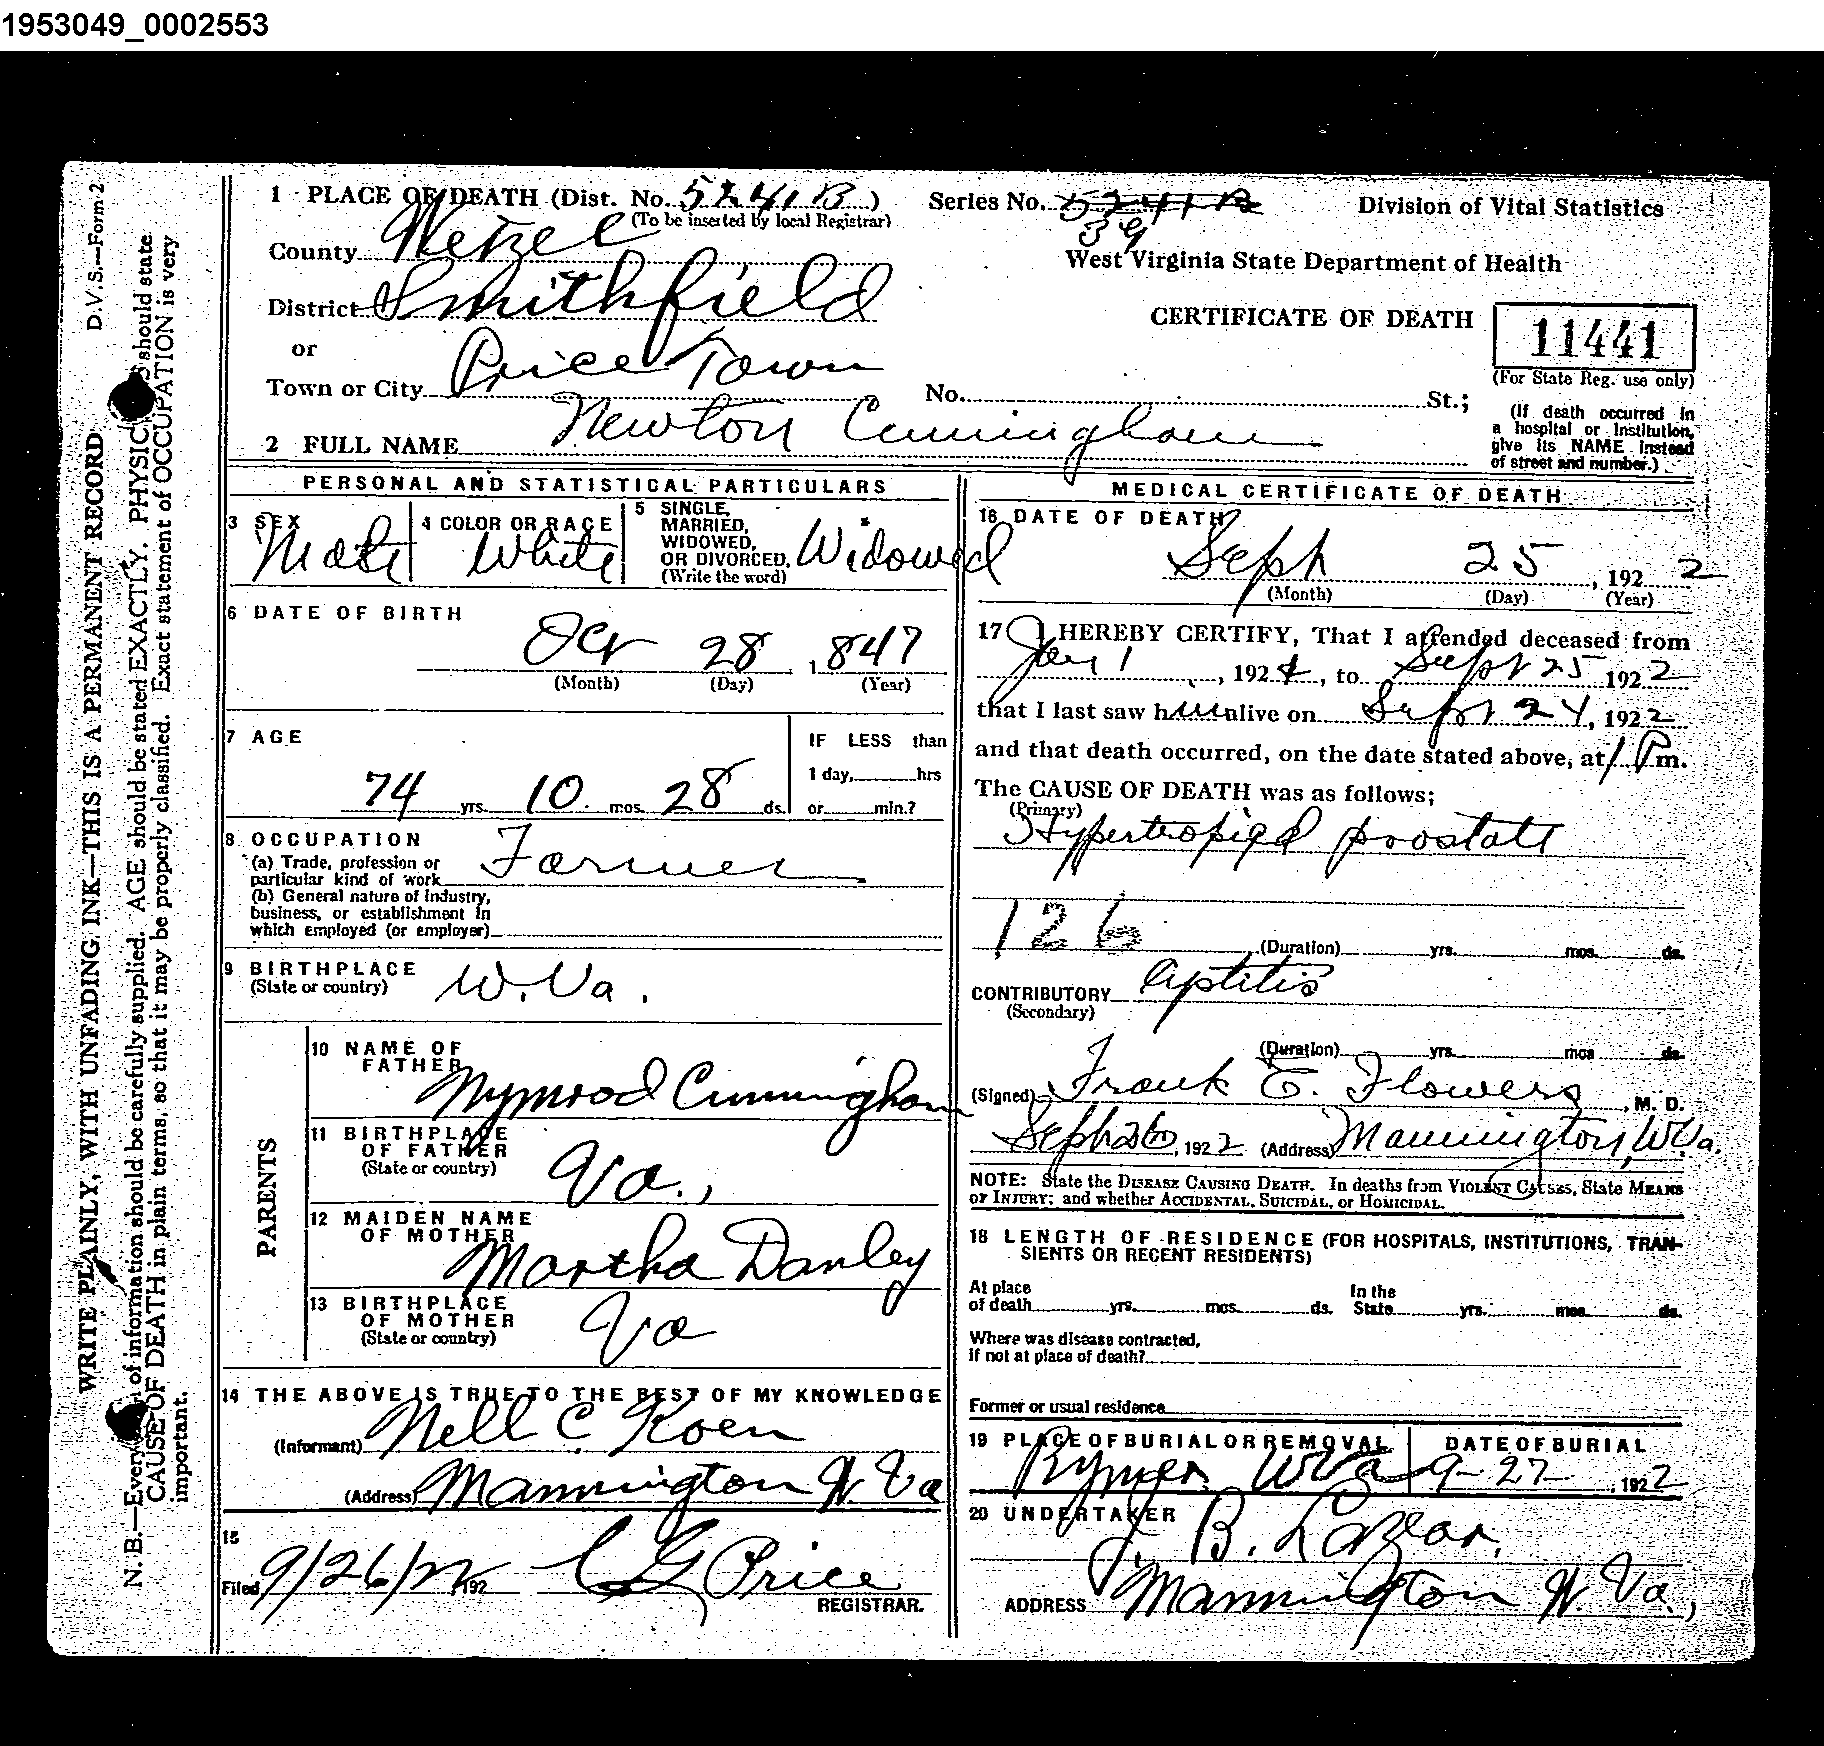 1953049_0002553
D.V.S.—Form-2
WRITE PLAINLY, WITH UNFADING INK—THIS IS A PERMANENT RECORD
N. B.—Every of information should be carefully supplied. AGE should be stated EXACTLY. PHYSIC S should state
CAUSE OF DEATH in plain terms, so that it may be properly classified. Exact statement of OCCUPATION is very
important.
1 PLACE OF DEATH (Dist. No. 5241B)
(To be inserted by local Registrar)
Series No. 5241B
39
Division of Vital Statistics
County Wetzel
West Virginia State Department of Health
District Smithfield
CERTIFICATE OF DEATH
11441
(For State Reg. use only)
or
Town or City Price Town
No. St.;
(If death occurred in
a hospital or institution,
give its NAME instead
of street and number.)
2 FULL NAME Newton Cunningham
PERSONAL AND STATISTICAL PARTICULARS
3 SEX
Male
4 COLOR OR RACE
White
5 SINGLE,
MARRIED,
WIDOWED,
OR DIVORCED.
(Write the word)
Widowed
6 DATE OF BIRTH
Oct 28, 1847
(Month) (Day) (Year)
7 AGE
74 yrs. 10 mos. 28 ds.
IF LESS than
1 day, hrs
or min.?
8 OCCUPATION
(a) Trade, profession or
particular kind of work Farmer
(b) General nature of industry,
business, or establishment in
which employed (or employer)
9 BIRTHPLACE
(State or country) W. Va.
PARENTS
10 NAME OF
FATHER
Nymrod Cunningham
11 BIRTHPLACE
OF FATHER
(State or country) Va.,
12 MAIDEN NAME
OF MOTHER
Martha Danley
13 BIRTHPLACE
OF MOTHER
(State or country) Va
14 THE ABOVE IS TRUE TO THE BEST OF MY KNOWLEDGE
(Informant) Nell C. Koen
(Address) Mannington W. Va
15
Filed 9/26/22 192 Price
REGISTRAR.
MEDICAL CERTIFICATE OF DEATH
16 DATE OF DEATH
Sept 25, 1922
(Month) (Day) (Year)
17 I HEREBY CERTIFY, That I attended deceased from
Jan 1, 192 , to Sept 25 1922
that I last saw him alive on Sept 24, 1922
and that death occurred, on the date stated above, at 1 Pm.
The CAUSE OF DEATH was as follows;
(Primary)
Hypertropied prostate
126
(Duration) yrs. mos. ds.
CONTRIBUTORY Cystitis
(Secondary)
(Duration) yrs. mos ds.
(Signed) Frank E. Flowers, M. D.
Sept 26, 1922 (Address) Mannington, W. Va.
NOTE: State the DISEASE CAUSING DEATH. In deaths from VIOLENT CAUSES, State MEANS
OF INJURY; and whether ACCIDENTAL, SUICIDAL, or HOMICIDAL.
18 LENGTH OF RESIDENCE (FOR HOSPITALS, INSTITUTIONS, TRAN-
SIENTS OR RECENT RESIDENTS)
At place
of death yrs. mos. ds.
In the
State yrs. mos. ds.
Where was disease contracted,
if not at place of death?
Former or usual residence
19 PLACE OF BURIAL OR REMOVAL
Rymer W Va
DATE OF BURIAL
9-27, 1922
20 UNDERTAKER
J. B. Lazear.
ADDRESS Mannington W. Va.,